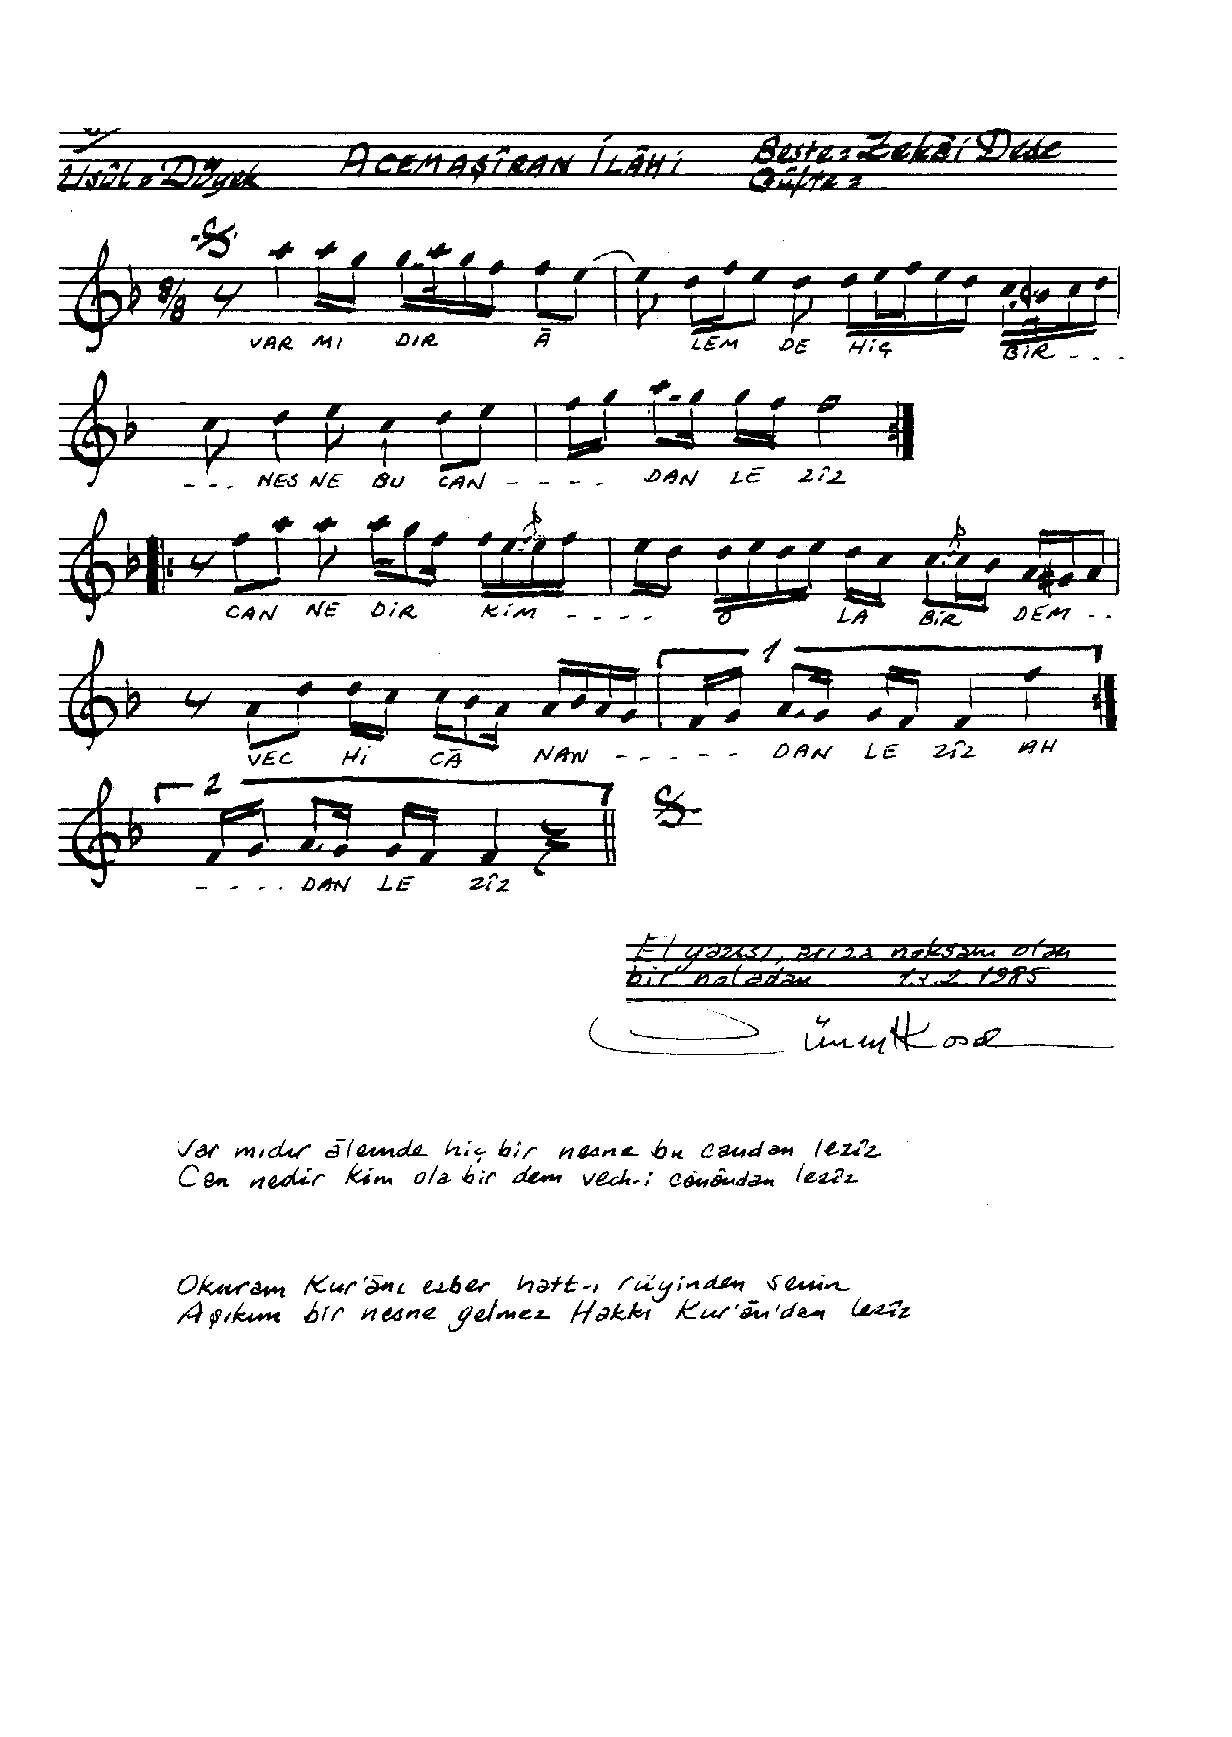 Usûl : Düyek ACEMAŞÎRAN İLÂHİ Beste : Zekâi Dede
Güfte :
8/8
VAR MI DIR Â LEM DE HİÇ BİR - - -
- - - NES NE BU CAN - - - - DAN LE ZÎZ
CAN NE DİR KİM - - - - O LA BİR DEM - -
1
VEC Hİ CÂ NAN - - - - - DAN LE ZÎZ AH
2
- - - - DAN LE ZÎZ
El yazısı, arıza noksanı olan
bir notadan 13.2.1985
Cüneyt Kosal
Var mıdır âlemde hiç bir nesne bu candan lezîz
Can nedir kim ola bir dem vech-i cânândan lezîz
Okuram Kur'ânı ezber hatt-ı rûyinden senin
Aşıkım bir nesne gelmez Hakkı Kur'ân'dan lezîz